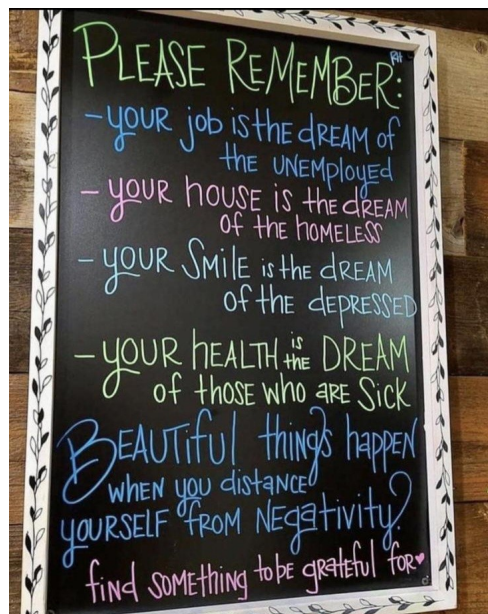 PLEASE REMEMBER:
RH
-YOUR job is the dREAM of
the UNEMployed
-YOUR hOUSE is the dREAM
of the hOMELESS
-YOUR SMilE is the dREAM
of the dEPRESSED
-YOUR hEALTH is the DREAM
of thOSE Who aRE SiCK
BEAUTiful things happen
WHEN you distance
YOURSELF FROM NEgativity!
find SOMEthing to be gRatEful foR♥